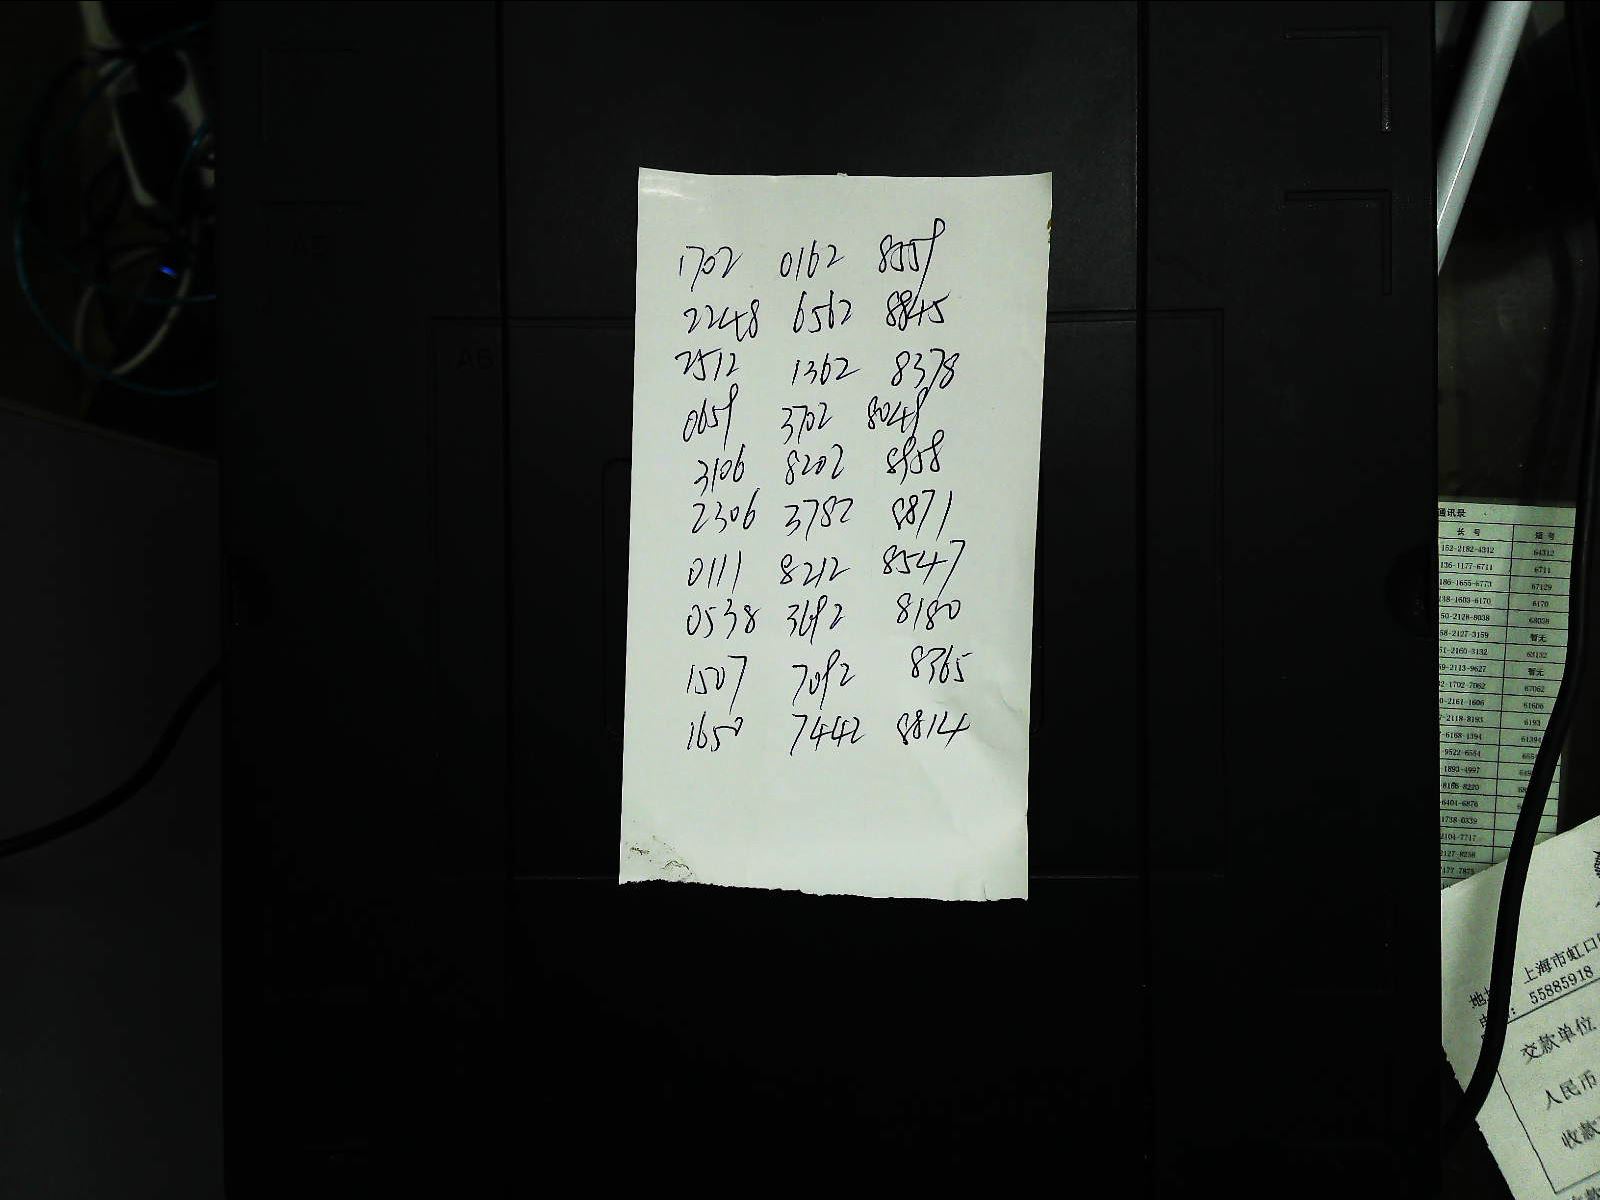 1702 0162 8559
2248 6562 8845
2512 1362 8378
0659 3702 8049
3106 8202 8958
2306 3782 8871
0111 8212 8547
0538 3692 8180
1507 7092 8365
1650 7442 8814
A5
A6
通讯录
长 号 短 号
152-2182-4312 64312
136-1177-6711 6711
186-1655-6773 67129
138-1603-6170 6170
50-2128-8038 68038
58-2127-3159 暂无
51-2160-3132 63132
59-2113-9627 暂无
2-1702-7062 67062
0-2161-1606 61606
7-2118-8193 6193
6168-1394 61394
9522-6554
1893-4997
8166-8220
6404-6876
1738-0339
2104-7717
2127-8258
177 7875
上海市虹口
55885918
交款单位
人民币
收款